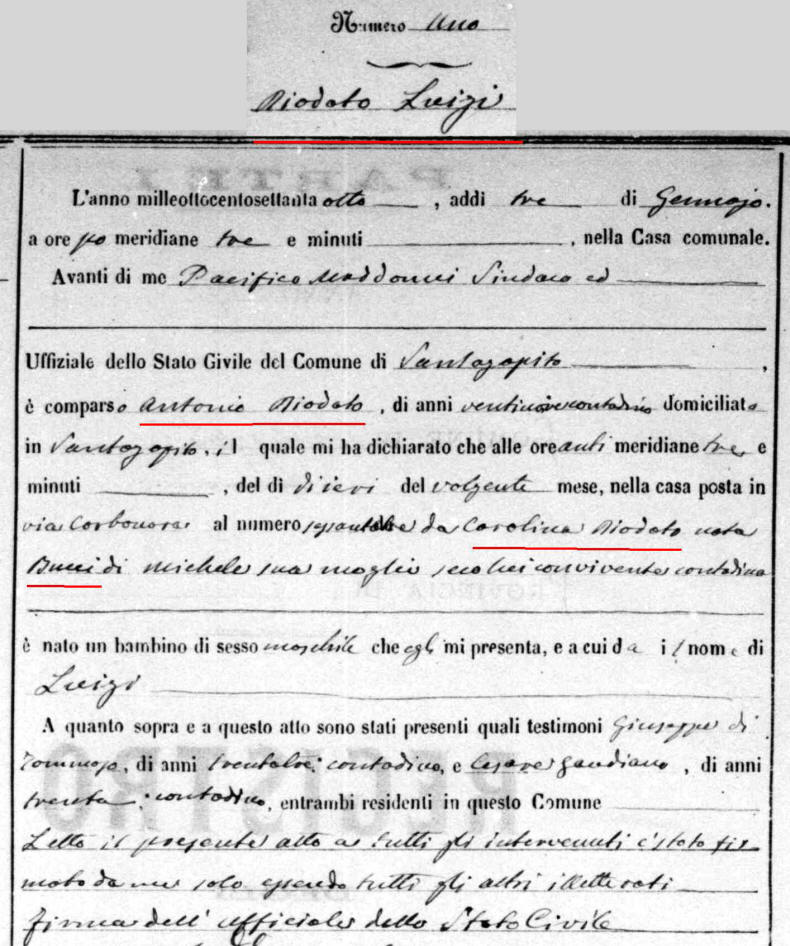 Numero Uno
Diodato Luigi
L'anno milleottocentosettanta otto, addi tre di Gennajo.
a ore po meridiane tre e minuti , nella Casa comunale.
Avanti di me Pacifico Maddonni Sindaco ed
Uffiziale dello Stato Civile del Comune di Santagapito ,
è comparso Antonio Diodato, di anni ventinove contadino domiciliato
in Santagapito, il quale mi ha dichiarato che alle ore anti meridiane tre e
minuti , del di dieci del volgente mese, nella casa posta in
via Carbonara al numero da Carolina Diodato nata
Bucci di Michele sua moglie seco lui convivente contadina
è nato un bambino di sesso maschile che egli mi presenta, e a cui da il nome di
Luigi
A quanto sopra e a questo atto sono stati presenti quali testimoni Giuseppe di
Tommaso, di anni trentatre, contadino, e Cesare Gaudiano, di anni
trenta, contadino, entrambi residenti in questo Comune
Letto il presente atto a tutti gli intervenuti è stato fir
mato da me solo essendo tutti gli altri illetterati
firma dell' ufficiale dello Stato Civile